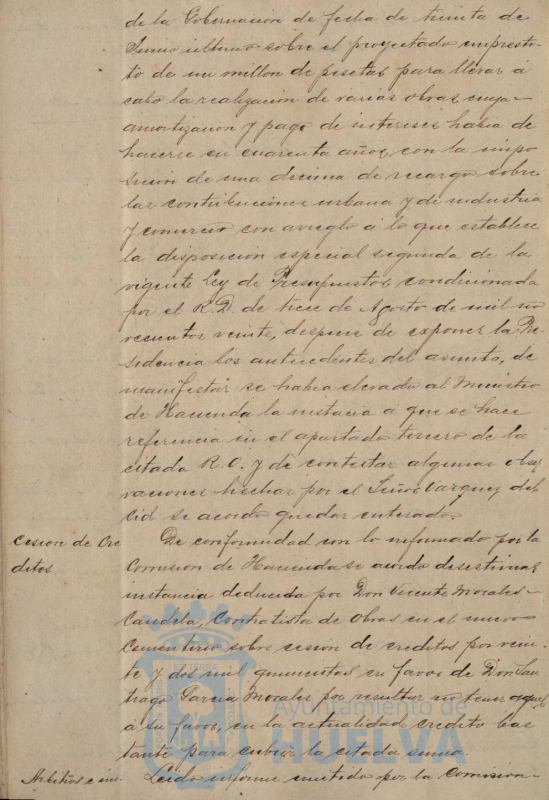 de la Gobernacion de fecha de treinta de
Junio ultimo sobre el proyectado empresti-
to de un millon de pesetas para llevar á
cabo la realizacion de varias obras cuya
amortizacion y pago de intereses habia de
hacerse en cuarenta años, con la impo
sicion de una decima de recargo sobre
las contribuciones urbana y de industria
y comercio con arreglo á lo que establece
la disposicion especial segunda de la
vigente Ley de Presupuestos, condicionada
por el R.D. de trece de Agosto de mil no
vecientos veinte, despues de exponer la Pre
sidencia los antecedentes del asunto, de
manifestar se habia elevado al Ministro
de Hacienda la instancia á que se hace
referencia en el apartado tercero de la
citada R.O. y de contestar algunas obser
vaciones hechas por el Señor Vazquez del
Cid se acordo quedar enterado.
Cesion de Cre
ditos
De conformidad con lo informado por la
Comision de Hacienda se acordo desestimar
instancia deducida por Don Vicente Morales
Candela, Contratista de obras en el nuevo
Cementerio sobre cesion de creditos por vein-
te y dos mil quinientas en favor de Don San
tiago Garcia Morales por resultar no tener aquel
á su favor, en la actualidad credito bas
tante para cubrir la citada suma.
Arbitrios e im-
Leido informe emitido por la Comision
Ayuntamiento de
HUELVA